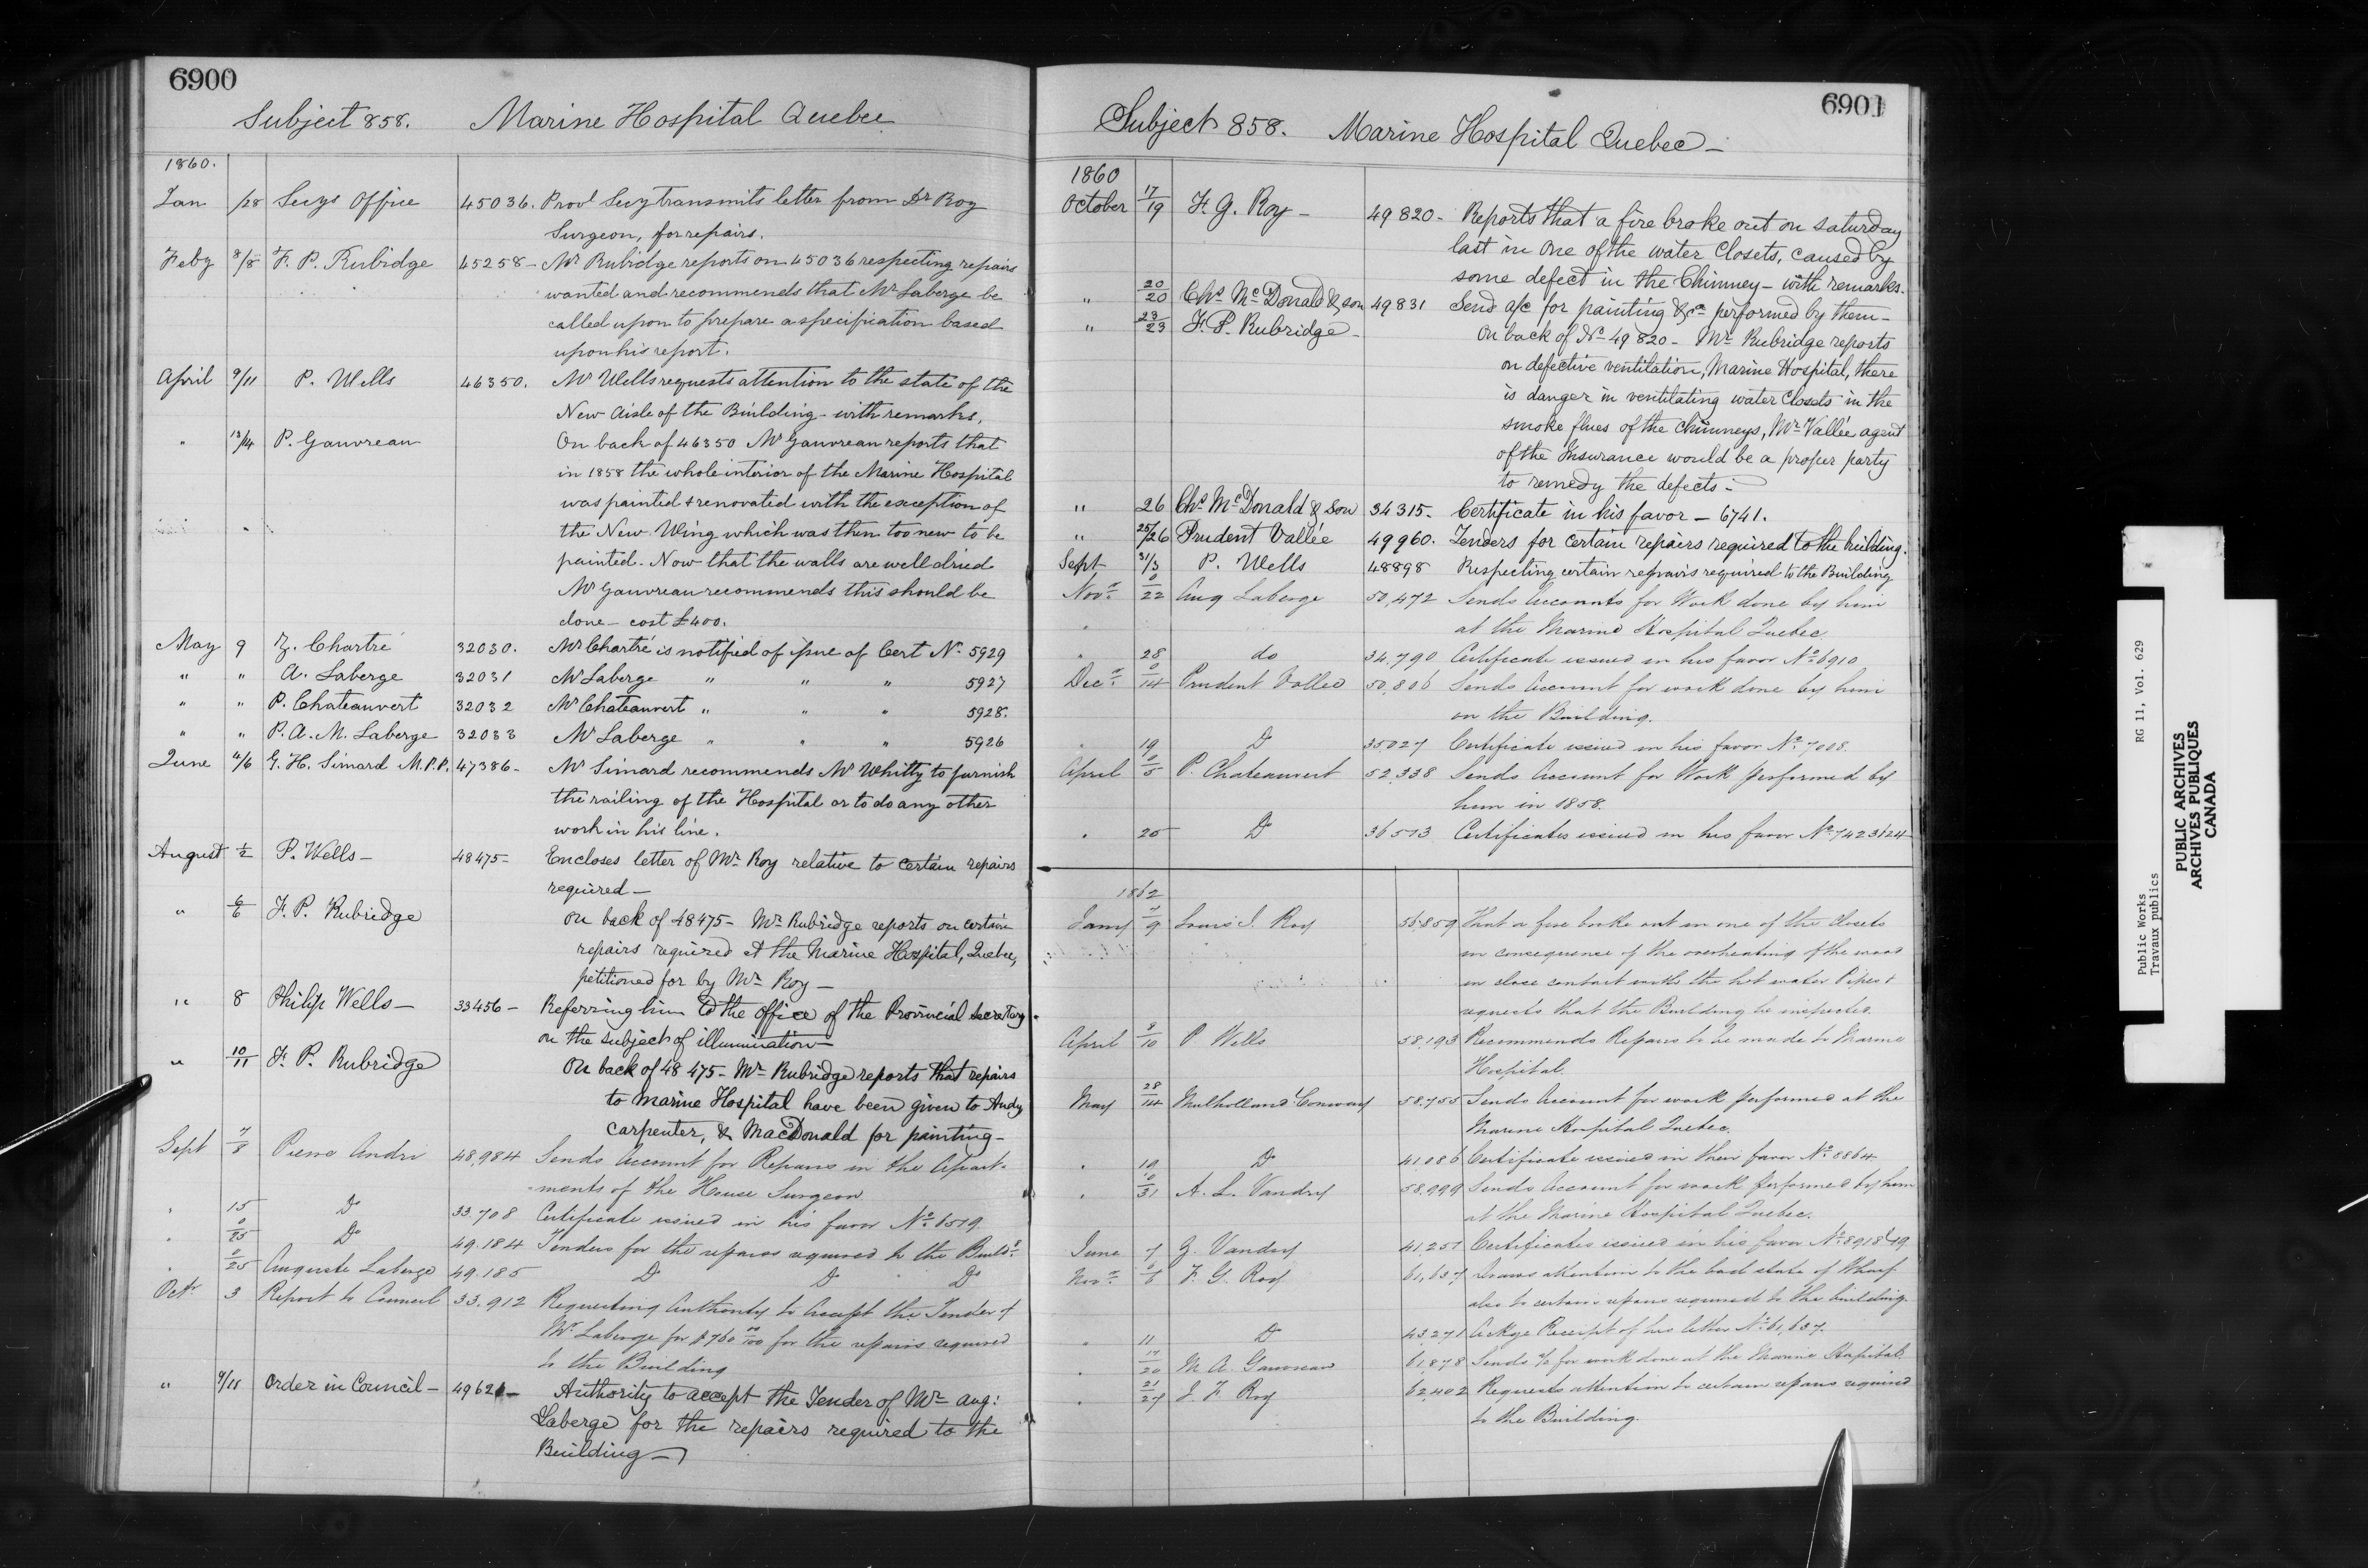 6900
Subject 858. Marine Hospital Quebec
1860.
Jan /28 Secys Office 45036. Provl Secy transmits letter from Dr Roy
Surgeon, for repairs.
Feby 8/8 F. P. Rubidge 45258 - Mr Rubidge reports on 45036 respecting repairs
wanted and recommends that Mr Laberge be
called upon to prepare a specification based
upon his report.
April 9/11 P. Wells 46350. Mr Wells requests attention to the state of the
New Aisle of the Building - with remarks.
" 13/14 P. Gauvreau On back of 46350 Mr Gauvreau reports that
in 1858 the whole interior of the Marine Hospital
was painted & renovated with the exception of
the New Wing which was then too new to be
painted. Now that the walls are well dried
Mr Gauvreau recommends this should be
done - cost £400.
May 9 Z. Chartré 32030. Mr Chartré is notified of issue of Cert No 5929
" " A. Laberge 32031 Mr Laberge " " " 5927
" " P. Chateauvert 32032 Mr Chateauvert " " " 5928.
" " P. A. M. Laberge 32033 Mr Laberge " " " 5926
June 4/6 G. H. Simard M.P.P. 47386 - Mr Simard recommends Mr Whitty to furnish
the railing of the Hospital or to do any other
work in his line.
August 1/2 P. Wells - 48475 - Encloses letter of Mr Roy relative to certain repairs
required -
" 6/6 F. P. Rubridge On back of 48475 - Mr Rubridge reports on certain
repairs required at the Marine Hospital, Quebec,
petitioned for by Mr Roy -
" 8 Philip Wells - 33456 - Referring him to the Office of the Provincial Secretary
on the subject of illumination -
" 10/11 F. P. Rubridge On back of 48475 - Mr Rubridge reports that repairs
to Marine Hospital have been given to Andy
Carpenter, & MacDonald for painting -
Sept 7/8 Pierre Andri 48,984 Sends Account for Repairs in the Apart-
ments of the House Surgeon
" 15 Do 33.708 Certificate issued in his favor No 6519
" 0/25 Do 49.184 Tenders for the repairs required to the Buildg
" 0/25 Auguste Laberge 49.185 Do Do Do
Octr 3 Report to Council 33.912 Requesting Authority to accept the Tender of
Mr Laberge for $760 00/100 for the repairs required
to the Building
" 9/11 Order in Council - 49621 - Authority to accept the Tender of Mr Aug:
Laberge for the repairs required to the
Building -
6901
Subject 858. Marine Hospital Quebec -
1860
October 17/19 F. G. Roy - 49820 - Reports that a fire broke out on saturday
last in one of the water Closets, caused by
some defect in the Chimney - with remarks.
" 20/20 Chs McDonald & son 49831 Send a/c for painting &ca performed by them -
" 23/23 F. P. Rubridge - On back of No 49820 - Mr Rubridge reports
on defective ventilation, Marine Hospital, there
is danger in ventilating water Closets in the
smoke flues of the chimneys, Mr Vallée agent
of the Insurance would be a proper party
to remedy the defects -
" 26 Chs McDonald & Son 34315. Certificate in his favor - 6741.
" 25/26 Prudent Vallée 49960. Tenders for certain repairs required to the building.
Sept 31/3 P. Wells 48898 Respecting certain repairs required to the Building
Novr 0/22 Aug Laberge 50,472 Sends Accounts for Work done by him
at the Marine Hospital Quebec
" 28 do 34,790 Certificate issued in his favor No 6910
Decr 0/14 Prudent Vallee 50,806 Sends Account for work done by him
on the Building.
" 19 Do 35027 Certificate issued in his favor No 7008.
April 0/5 P. Chateauvert 52,338 Sends Account for Work performed by
him in 1858.
" 20 Do 36513 Certificates issued in his favor No 7423 & 24
1862
Jany 7/9 Louis I. Roy 56,859 That a fire broke out in one of the closets
in consequence of the overheating of the wood
in close contact with the hot water Pipes &
requests that the Building be inspected.
April 9/10 P Wells 58,193 Recommends Repairs to be made to Marine
Hospital.
May 28/14 Mulholland & Conway 58,755 Sends Account for work performed at the
Marine Hospital Quebec.
" 19 Do 41,086 Certificate issued in their favor No 8864
" 0/31 A. L. Vandry 58,999 Sends Account for work performed by him
at the Marine Hospital Quebec.
June 7 Z. Vandry 41,251 Certificates issued in his favor No 8918 & 19
Novr 0/6 F. G. Roy 61,637 Draws attention to the bad state of Wharf
also to certain repairs required to the building.
" 11 Do 43,271 Ackge Receipt of his letter No 61,637.
" 17/20 M A. Gauvreau 61,878 Sends a/c for work done at the Marine Hospital.
" 21/27 J F Roy 62,402 Requests attention to certain repairs required
to the Building.
Public Works RG 11, Vol. 629
Travaux publics
PUBLIC ARCHIVES
ARCHIVES PUBLIQUES
CANADA